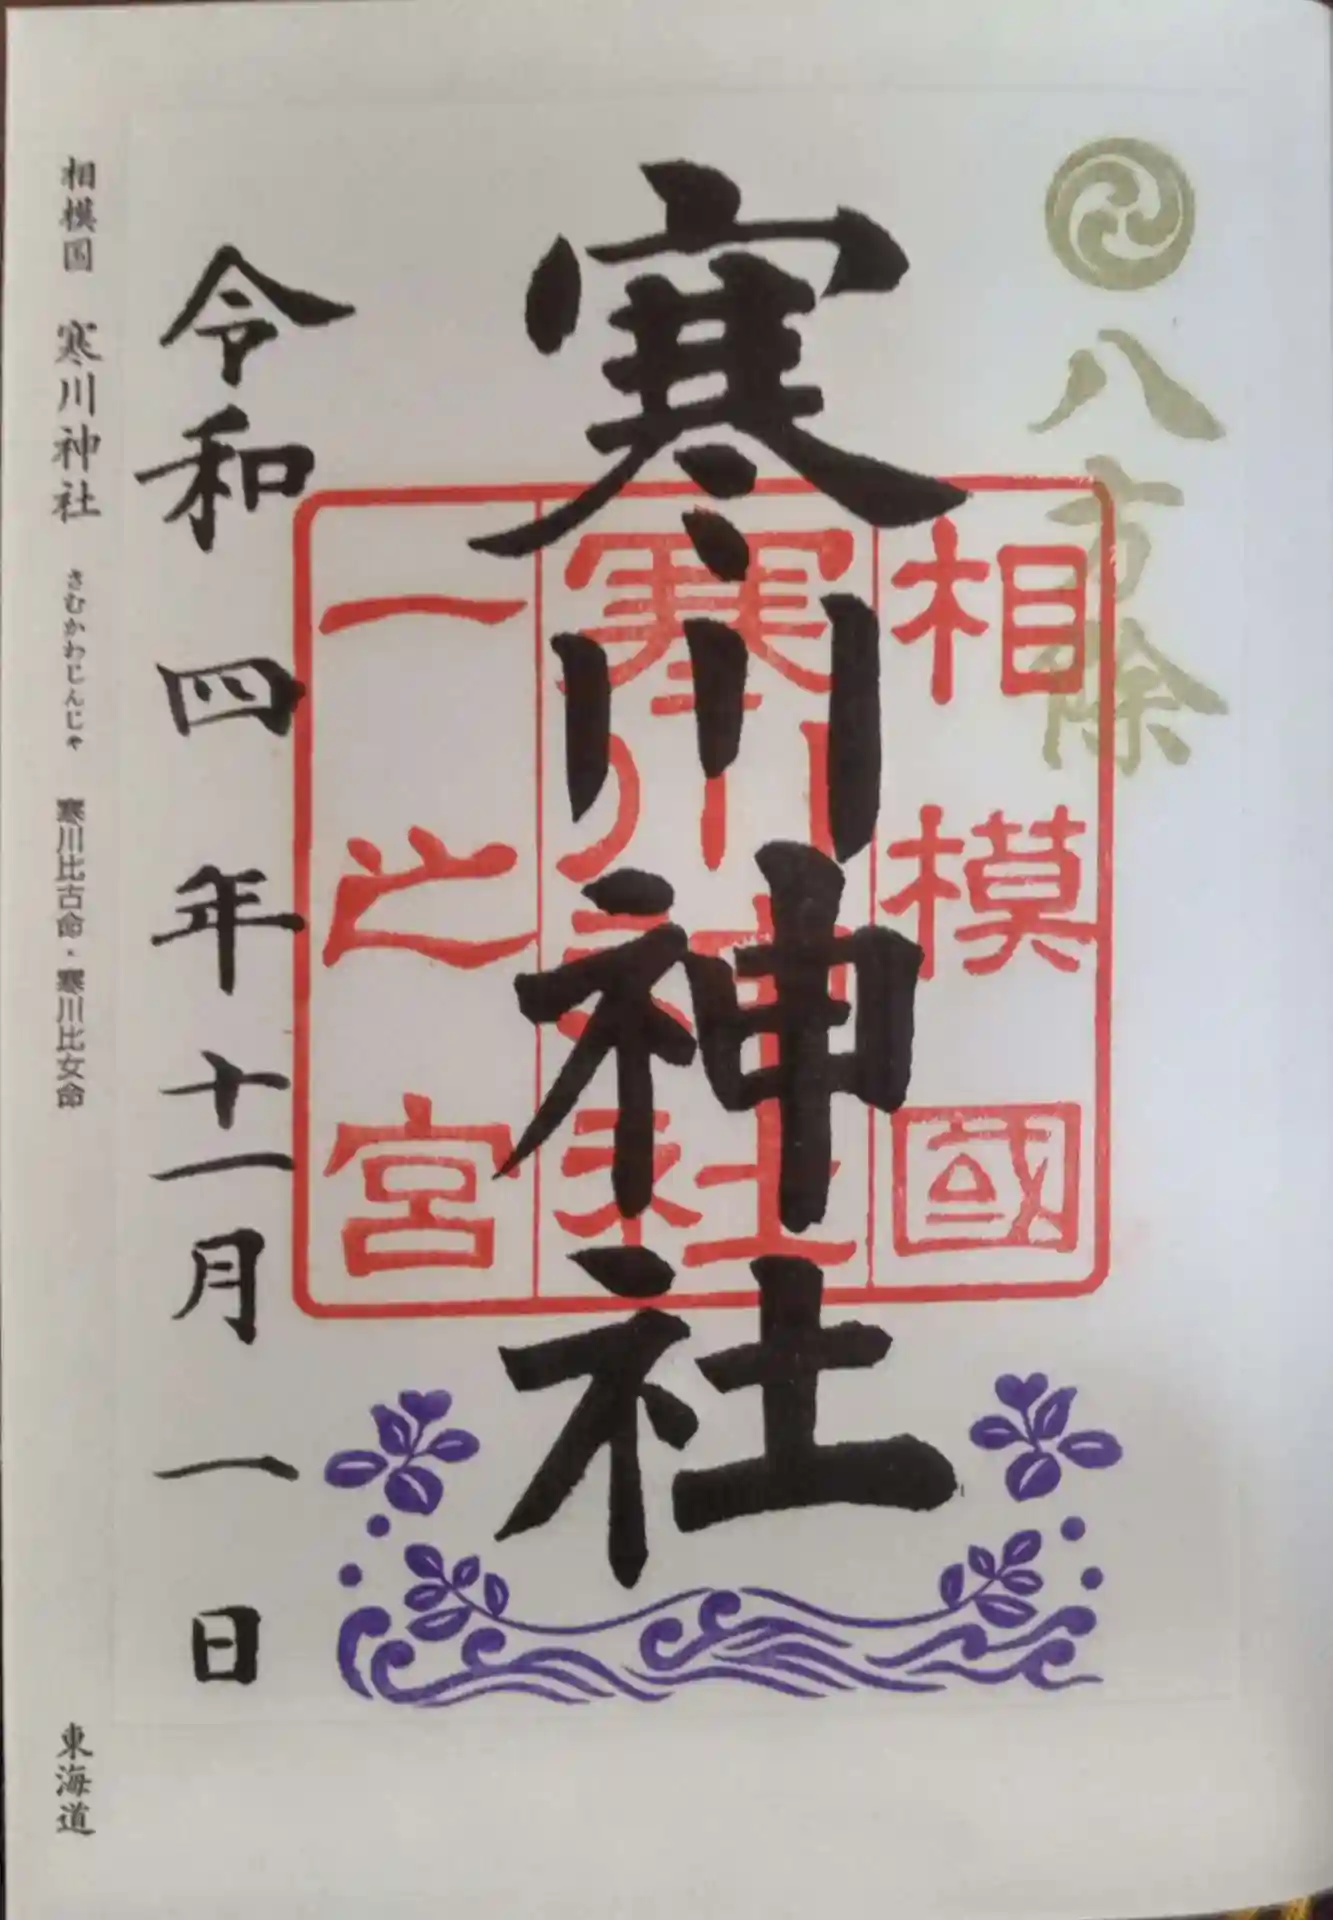 八方除
寒川神社
相模國
寒川神社
一之宮
令和四年十一月一日
相模国 寒川神社 さむかわじんじゃ 寒川比古命・寒川比女命
東海道